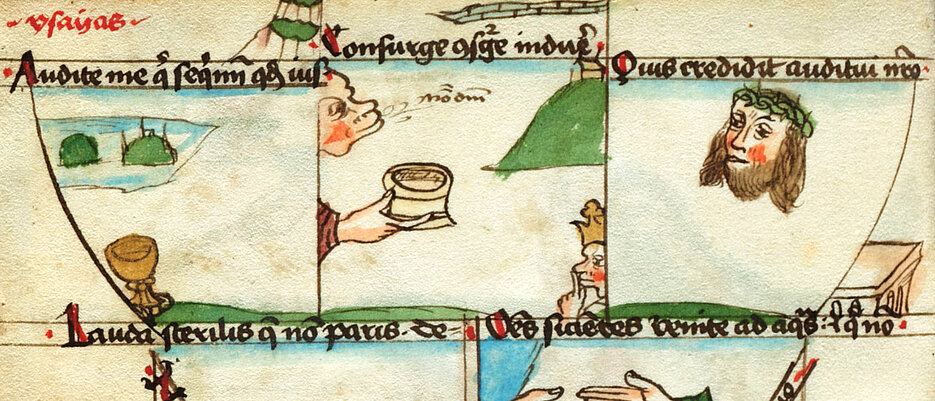 · ysayas ·
Consurge ꝯsg̾e induẽ
Audite me q̃ seq̃mĩ qd̃ ius
Quis credidit auditui nr̃o
Lauda sterilis q̃ nõ paris · de
Oẽs siciẽtes venite ad aq̃s : ⁊ q̃ nõ